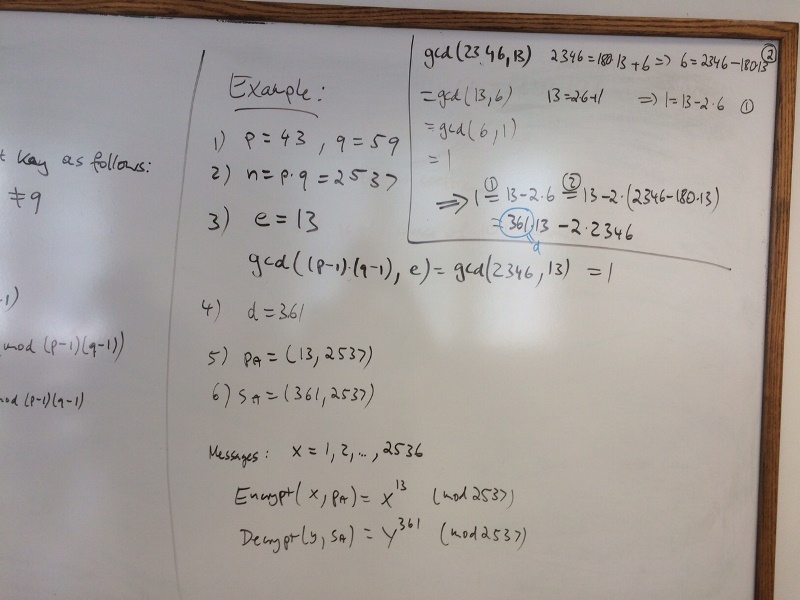 t key as follows:
≠q
-1)
mod (p-1)(q-1))
mod (p-1)(q-1)
Example:
1) p=43, q=59
2) n=p·q=2537
3) e=13
gcd((p-1)·(q-1), e)=gcd(2346, 13) =1
4) d=361
5) PA=(13, 2537)
6) SA=(361, 2537)
Messages: x=1, 2, ..., 2536
Encrypt(x, PA)=x^13 (mod 2537)
Decrypt(y, SA)=y^361 (mod 2537)
gcd(2346, 13) 2346=180·13+6 => 6=2346-180·13 ②
=gcd(13, 6) 13=2·6+1 => 1=13-2·6 ①
=gcd(6, 1)
=1
=> 1 ①= 13-2·6 ②= 13-2·(2346-180·13)
=361·13 -2·2346
d